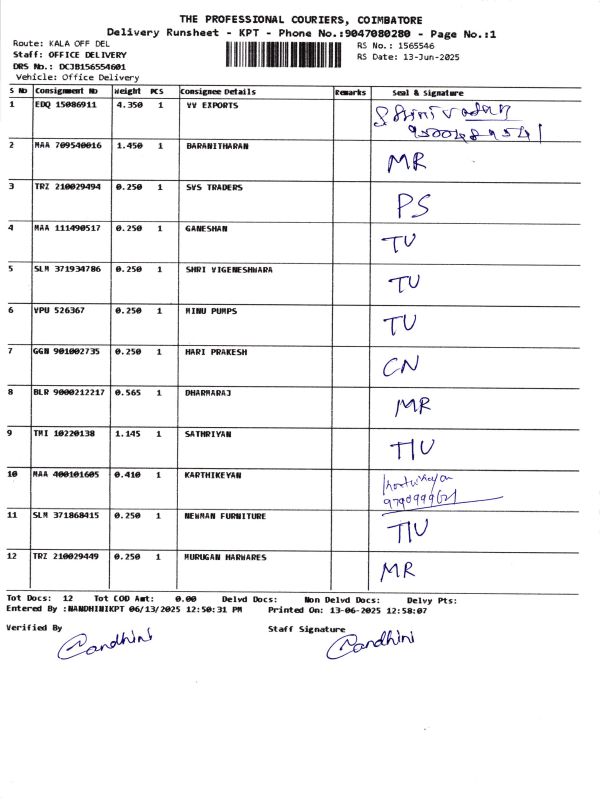 THE PROFESSIONAL COURIERS, COIMBATORE
Delivery Runsheet - KPT - Phone No.:9047080280 - Page No.:1
Route: KALA OFF DEL
RS No.: 1565546
Staff: OFFICE DELIVERY
RS Date: 13-Jun-2025
DRS No.: DCJB156554601
Vehicle: Office Delivery
S No Consignment No Weight PCS Consignee Details Remarks Seal & Signature
1 EDQ 15086911 4.350 1 VV EXPORTS
2 MAA 709540016 1.450 1 BARANITHARAN MR
3 TRZ 210029494 0.250 1 SVS TRADERS PS
4 MAA 111490517 0.250 1 GANESHAN TU
5 SLM 371934786 0.250 1 SHRI VIGENESHWARA TU
6 VPU 526367 0.250 1 MINU PUMPS TU
7 GGN 901002735 0.250 1 HARI PRAKESH CN
8 BLR 9000212217 0.565 1 DHARMARAJ MR
9 TMI 10220138 1.145 1 SATHRIYAN T/U
10 MAA 400101605 0.410 1 KARTHIKEYAN
11 SLM 371868415 0.250 1 NEWMAN FURNITURE T/U
12 TRZ 210029449 0.250 1 MURUGAN HARWARES MR
Tot Docs: 12 Tot COD Amt: 0.00 Delvd Docs: Non Delvd Docs: Delvy Pts:
Entered By :NANDHINIKPT 06/13/2025 12:50:31 PM Printed On: 13-06-2025 12:58:07
Verified By Staff Signature